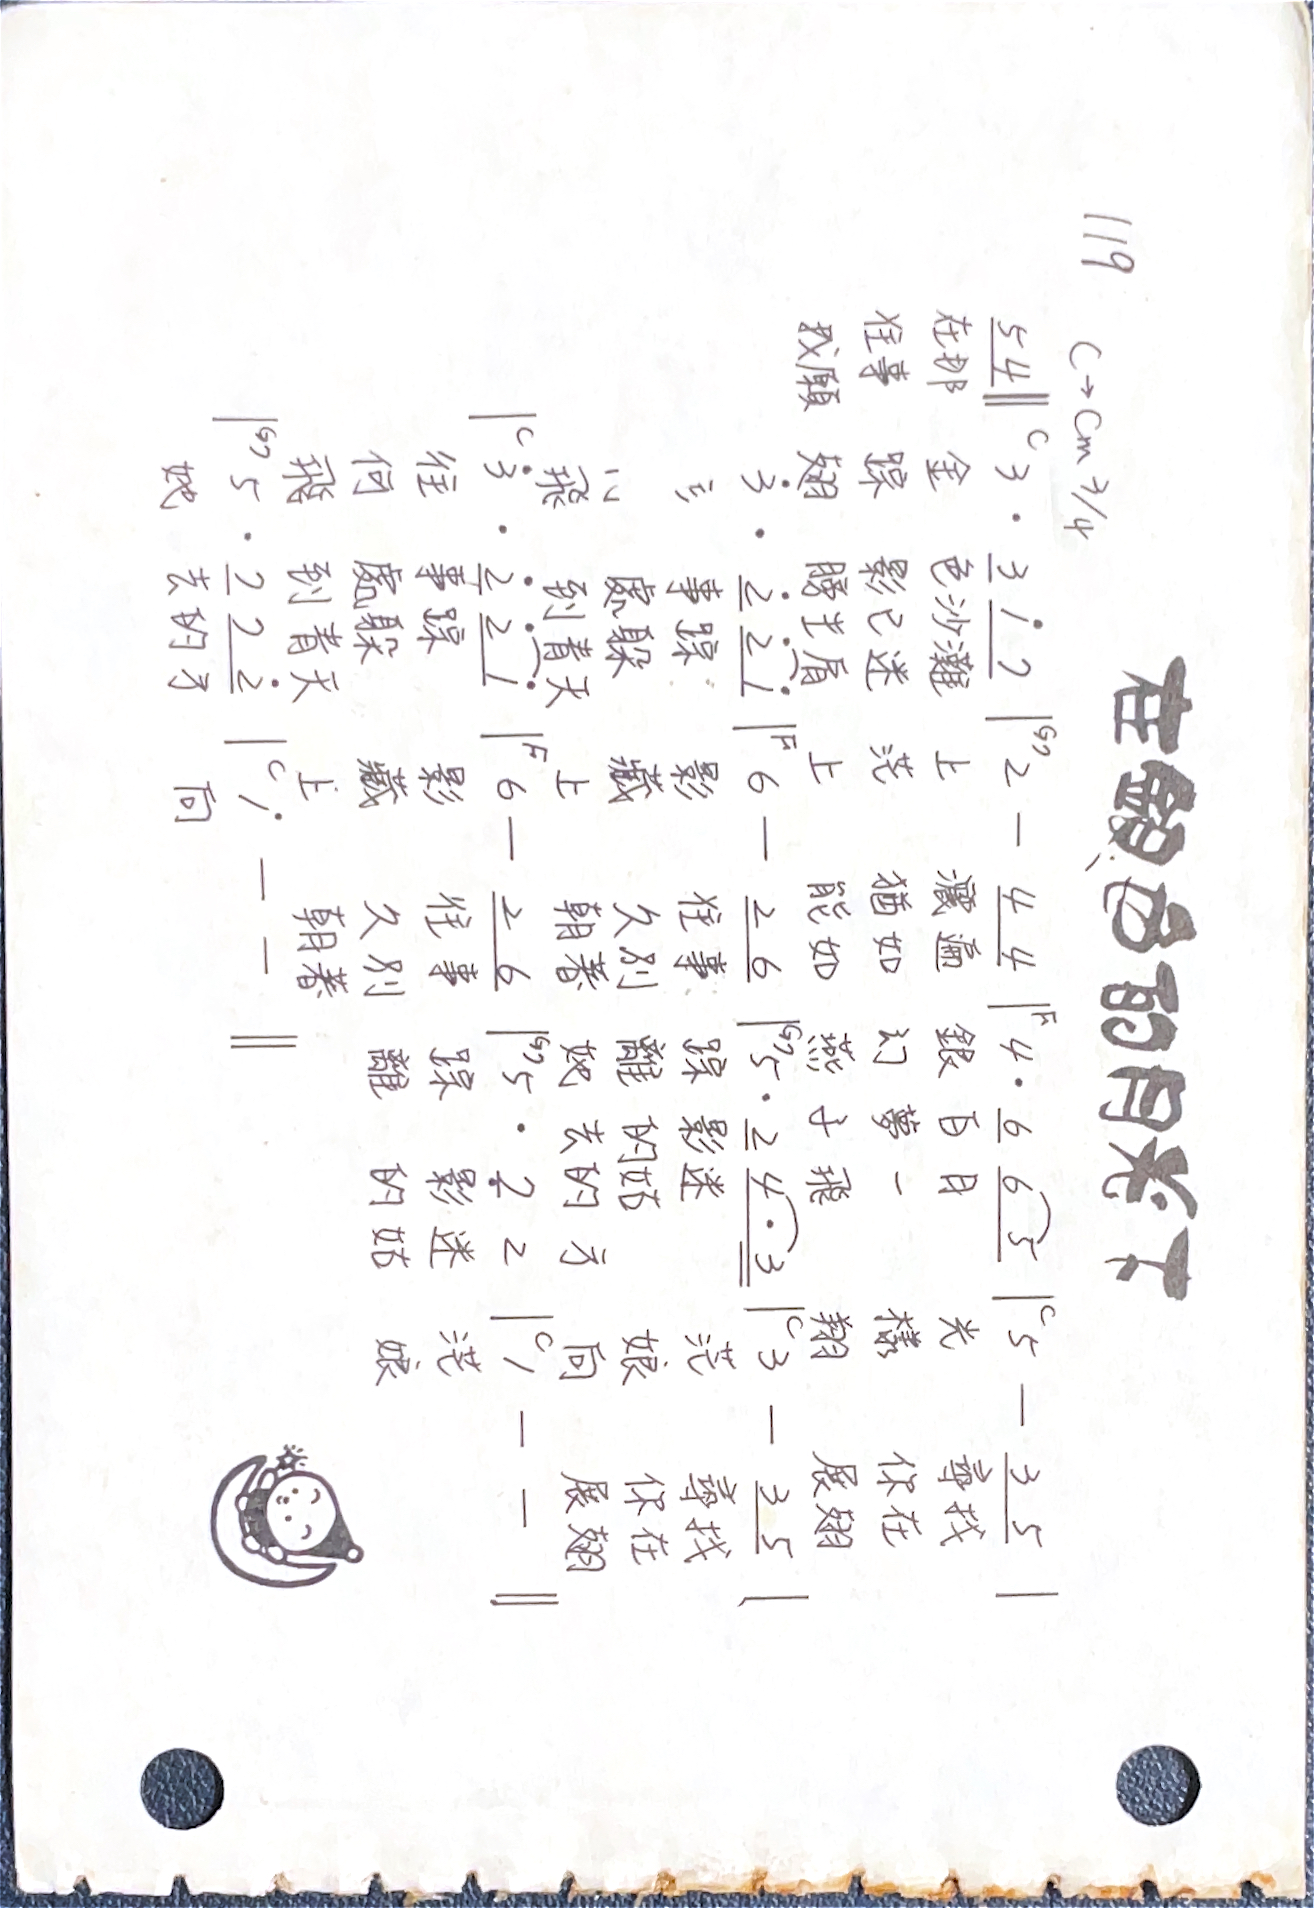 在銀色的月光下
119
C→Cm 3/4
5 4 ‖ C 3 · 3 i 7 | G7 2 — 4 4 | F 4 · 6 6 5 | C 5 — 3 5 |
在那 金 色沙灘 上 灑遍 銀白月 光 尋找
往事 踪 影已迷 茫 猶如 幻夢一 樣 你在
我願 翅 膀生肩 上 能如 燕子飛 翔 展翅
3̇ · 2̇ 2̇ i | F 6 — 2 6 | G7 5 · 2 4 · 3 | C 3 — 3 5 |
事踪 影 往事 踪影迷 茫 尋找
處躲 藏 久別 離的姑 娘 你在
飛 到青天 上 朝著 她去的方 向 展翅
| C 3̇ · 2̇ 2̇ i | F 6 — 2 6 | G7 5 · 7̣ 2 | C 1 — — ‖
往 事踪 影 往事 踪 影迷 茫
何 處躲 藏 久別 離 的姑 娘
飛 到青天 上 朝著
| G7 5 · 7 7 2̇ | C i — — ‖
她 去的方 向